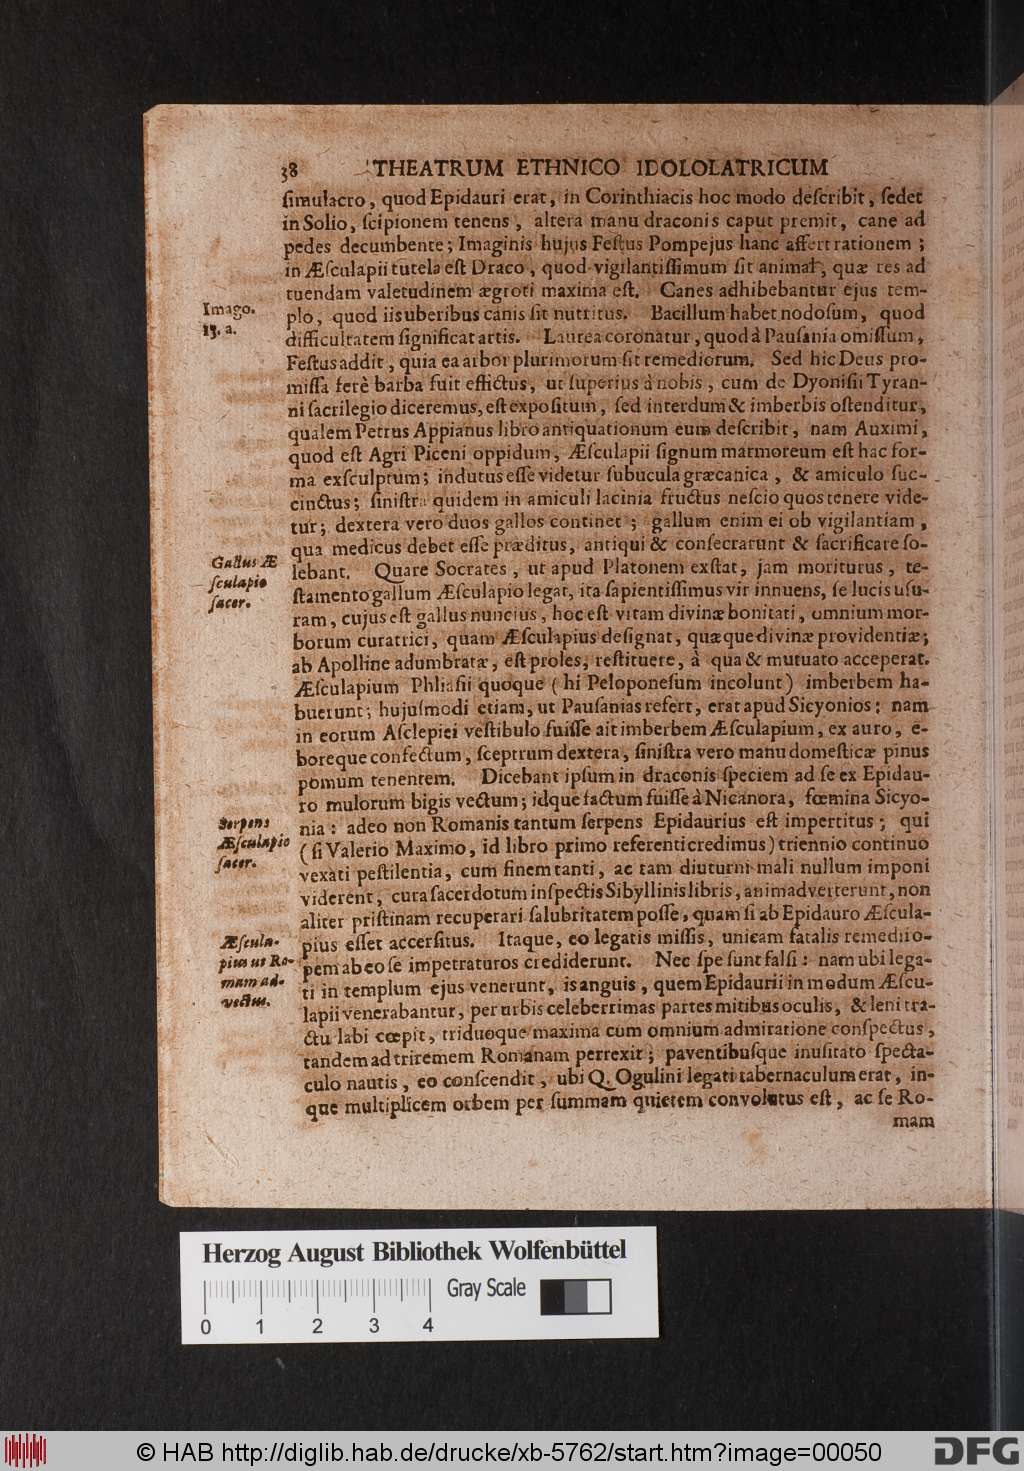 38 THEATRUM ETHNICO IDOLOLATRICUM
ſimulacro, quod Epidauri erat, in Corinthiacis hoc modo deſcribit, ſedet
in Solio, ſcipionem tenens, altera manu draconis caput premit, cane ad
pedes decumbente; Imaginis hujus Feſtus Pompejus hanc affert rationem;
in Æſculapii tutela eſt Draco, quod vigilantiſſimum ſit animal, quæ res ad
tuendam valetudinem ægroti maxima eſt. Canes adhibebantur ejus tem-
Imago.
13. a.
plo, quod iis uberibus canis ſit nutritus. Bacillum habet nodoſum, quod
difficultatem ſignificat artis. Laurea coronatur, quod à Pauſania omiſſum,
Feſtus addit, quia ea arbor plurimorum ſit remediorum. Sed hic Deus pro-
miſſa ferè barba fuit effictus, ut ſuperius à nobis, cum de Dyoniſii Tyran-
ni ſacrilegio diceremus, eſt expoſitum, ſed interdum & imberbis oſtenditur,
qualem Petrus Appianus libro antiquationum eum deſcribit, nam Auximi,
quod eſt Agri Piceni oppidum, Æſculapii ſignum marmoreum eſt hac for-
ma exſculptum; indutus eſſe videtur ſubucula græcanica, & amiculo ſuc-
cinctus; ſiniſtra quidem in amiculi lacinia fructus neſcio quos tenere vide-
tur; dextera vero duos gallos continet; gallum enim ei ob vigilantiam,
qua medicus debet eſſe præditus, antiqui & conſecrarunt & ſacrificare ſo-
Gallus Æ
ſculapio
ſacer.
lebant. Quare Socrates, ut apud Platonem exſtat, jam moriturus, te-
ſtamento gallum Æſculapio legat, ita ſapientiſſimus vir innuens, ſe lucis uſu-
ram, cujus eſt gallus nuncius, hoc eſt vitam divinæ bonitati, omnium mor-
borum curatrici, quam Æſculapius deſignat, quæque divinæ providentiæ;
ab Apolline adumbratæ, eſt proles, reſtituere, à qua & mutuato acceperat.
Æſculapium Phliaſii quoque (hi Peloponeſum incolunt) imberbem ha-
buerunt; hujuſmodi etiam, ut Pauſanias refert, erat apud Sicyonios: nam
in eorum Aſclepiei veſtibulo fuiſſe ait imberbem Æſculapium, ex auro, e-
boreque confectum, ſceptrum dextera, ſiniſtra vero manu domeſticæ pinus
pomum tenentem. Dicebant ipſum in draconis ſpeciem ad ſe ex Epidau-
ro mulorum bigis vectum; idque factum fuiſſe à Nicanora, fœmina Sicyo-
Serpens
Æſculapio
ſacer.
nia: adeo non Romanis tantum ſerpens Epidaurius eſt impertitus; qui
(ſi Valerio Maximo, id libro primo referenti credimus) triennio continuo
vexati peſtilentia, cum finem tanti, ac tam diuturni mali nullum imponi
viderent, cura ſacerdotum inſpectis Sibyllinis libris, animadverterunt, non
aliter priſtinam recuperari ſalubritatem poſſe, quam ſi ab Epidauro Æſcula-
Æſcula-
pius ut Ro-
mam ad-
vectus.
pius eſſet accerſitus. Itaque, eo legatis miſſis, unicam fatalis remedii o-
pem ab eo ſe impetraturos crediderunt. Nec ſpe ſunt falſi: nam ubi lega-
ti in templum ejus venerunt, is anguis, quem Epidaurii in modum Æſcu-
lapii venerabantur, per urbis celeberrimas partes mitibus oculis, & leni tra-
ctu labi cœpit, triduoque maxima cum omnium admiratione conſpectus,
tandem ad triremem Romanam perrexit; paventibuſque inuſitato ſpecta-
culo nautis, eo conſcendit, ubi Q. Ogulini legati tabernaculum erat, in-
que multiplicem orbem per ſummam quietem convolutus eſt, ac ſe Ro-
mam
Herzog August Bibliothek Wolfenbüttel
0 1 2 3 4 Gray Scale
© HAB http://diglib.hab.de/drucke/xb-5762/start.htm?image=00050
DFG